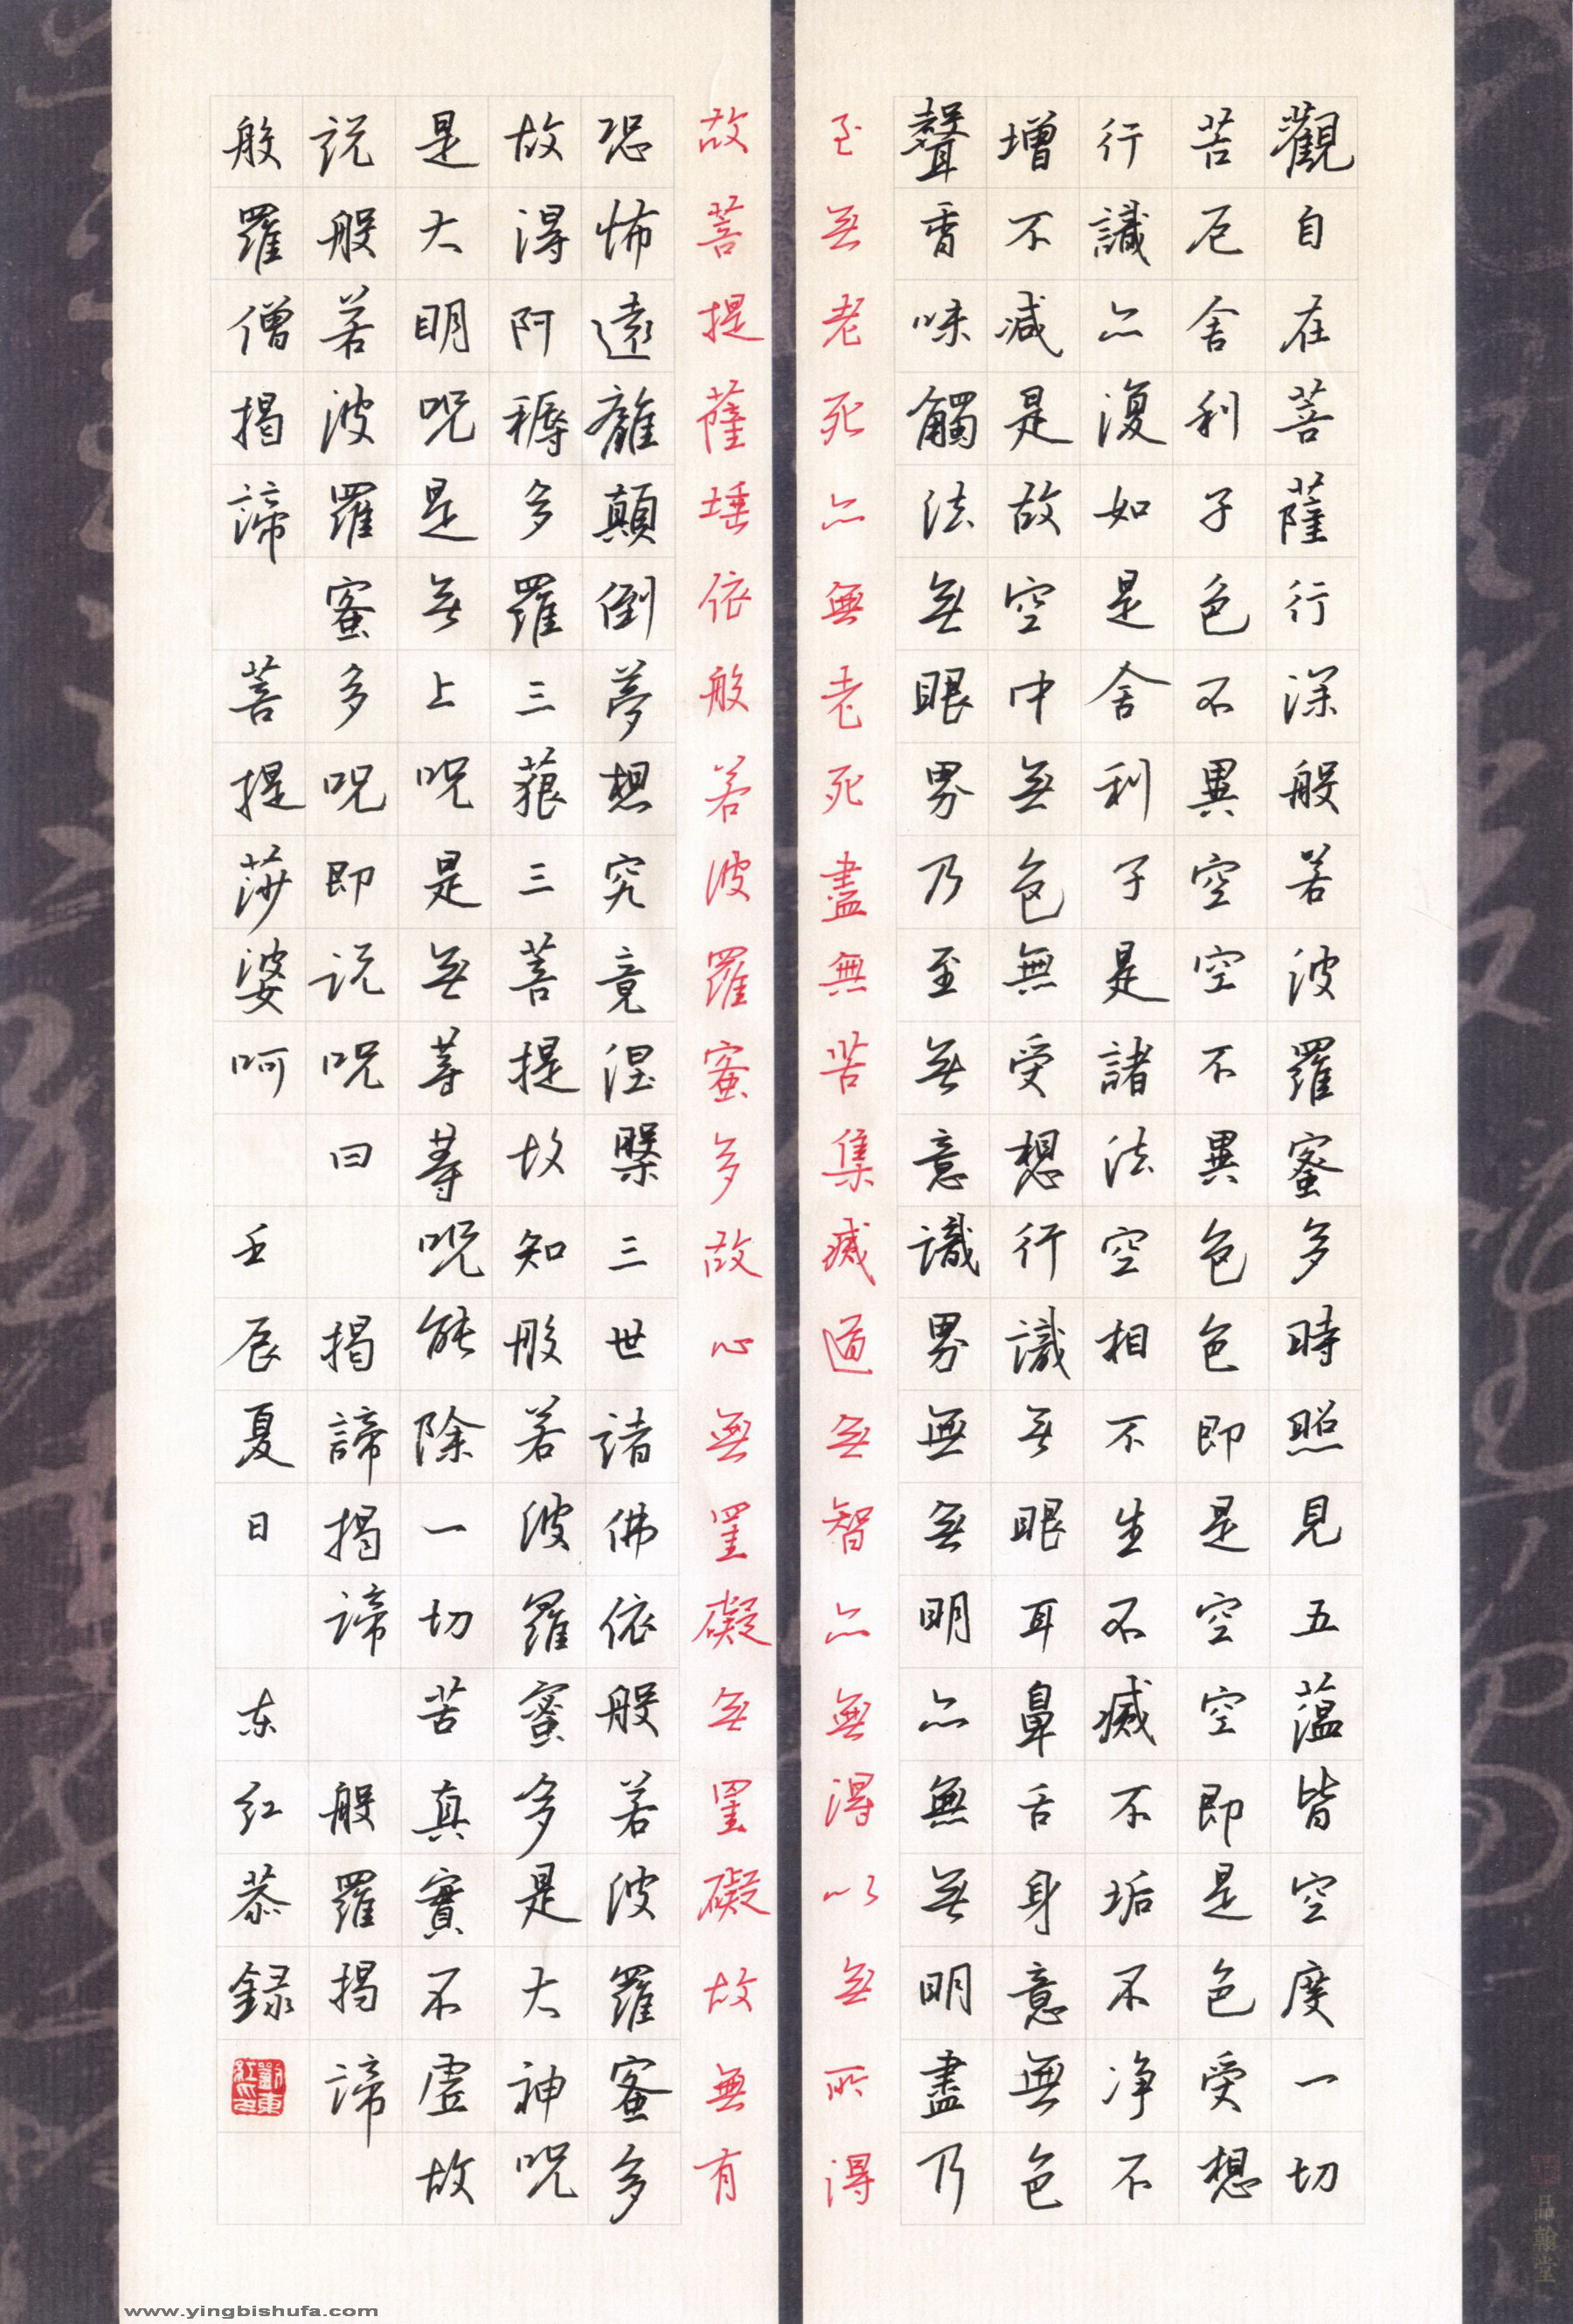 觀自在菩薩行深般若波羅蜜多時照見五蕰皆空度一切
苦厄舍利子色不異空空不異色色即是空空即是色受想
行識亦復如是舍利子是諸法空相不生不滅不垢不净不
增不减是故空中無色無受想行識無眼耳鼻舌身意無色
聲香味觸法無眼界乃至無意識界無無明亦無無明盡乃
至無老死亦無老死盡無苦集滅道無智亦無得以無所得
故菩提薩埵依般若波羅蜜多故心無罣礙無罣礙故無有
恐怖遠離顛倒夢想究竟涅槃三世諸佛依般若波羅蜜多
故得阿耨多羅三藐三菩提故知般若波羅蜜多是大神呪
是大明呪是無上呪是無等等呪能除一切苦真實不虛故
説般若波羅蜜多呪即説呪曰 揭諦揭諦 般羅揭諦
般羅僧揭諦 菩提莎婆呵 壬辰夏日 东红恭録
劉東紅印
品翰堂
www.yingbishufa.com